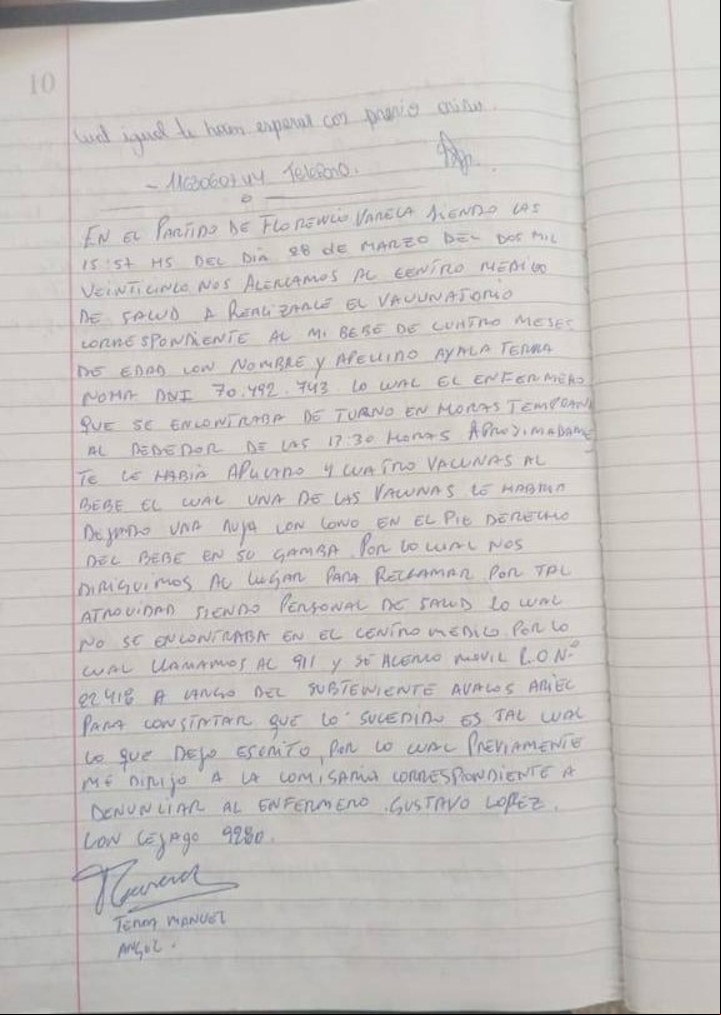 10
cual igual te hacen esperar con previo aviso.
Telefono.
EN EL PARTIDO DE FLORENCIO VARELA SIENDO LAS
15:57 HS DEL DIA 28 de MARZO DEL DOS MIL
VEINTICINCO NOS ACERCAMOS AL CENTRO MEDICO
DE SALUD A REALIZARLE EL VACUNATORIO
CORRESPONDIENTE AL MI BEBE DE CUATRO MESES
DE EDAD CON NOMBRE Y APELLIDO AYALA TERRA
NOHA DNI 70.492.743 LO CUAL EL ENFERMERO
QUE SE ENCONTRABA DE TURNO EN HORAS TEMPRANA
AL REDEDOR DE LAS 12:30 HORAS APROXIMADAME
TE LE HABIA APLICADO Y CUATRO VACUNAS AL
BEBE EL CUAL UNA DE LAS VACUNAS LE HABRIA
DEJADO UNA AUJA CON CONO EN EL PIE DERECHO
DEL BEBE EN SU GAMBA. POR LO CUAL NOS
DIRIGUIMOS AL LUGAR PARA RECLAMAR POR TAL
ATROVIDAD SIENDO PERSONAL DE SALUD LO CUAL
NO SE ENCONTRABA EN EL CENTRO MEDICO. POR LO
CUAL LLAMAMOS AL 911 Y SE ACERCO MOVIL R.O N°
22418 A CARGO DEL SUBTENIENTE AVALOS ARIEL
PARA CONSTATAR QUE LO SUCEDIDO ES TAL CUAL
LO QUE DEJO ESCRITO, POR LO CUAL PREVIAMENTE
ME DIRIJO A LA COMISARIA CORRESPONDIENTE A
DENUNCIAR AL ENFERMERO. GUSTAVO LOPEZ.
CON LEJAGO 9280.
TERRA MANUEL
ANGEL.